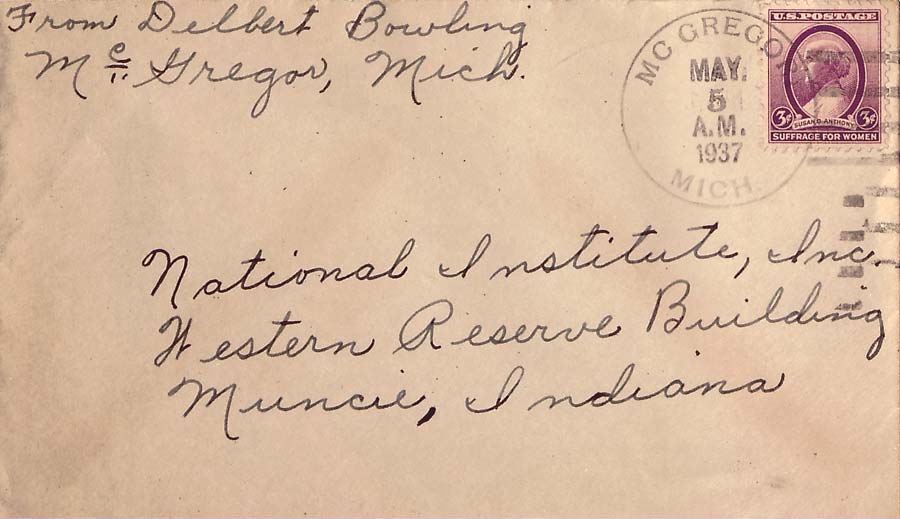 From Delbert Bowling
Mc Gregor, Mich.
MC GREGOR
MAY.
5
A.M.
1937
MICH.
U.S. POSTAGE
3¢ SUSAN B. ANTHONY 3¢
SUFFRAGE FOR WOMEN
National Institute, Inc.
Western Reserve Building
Muncie, Indiana